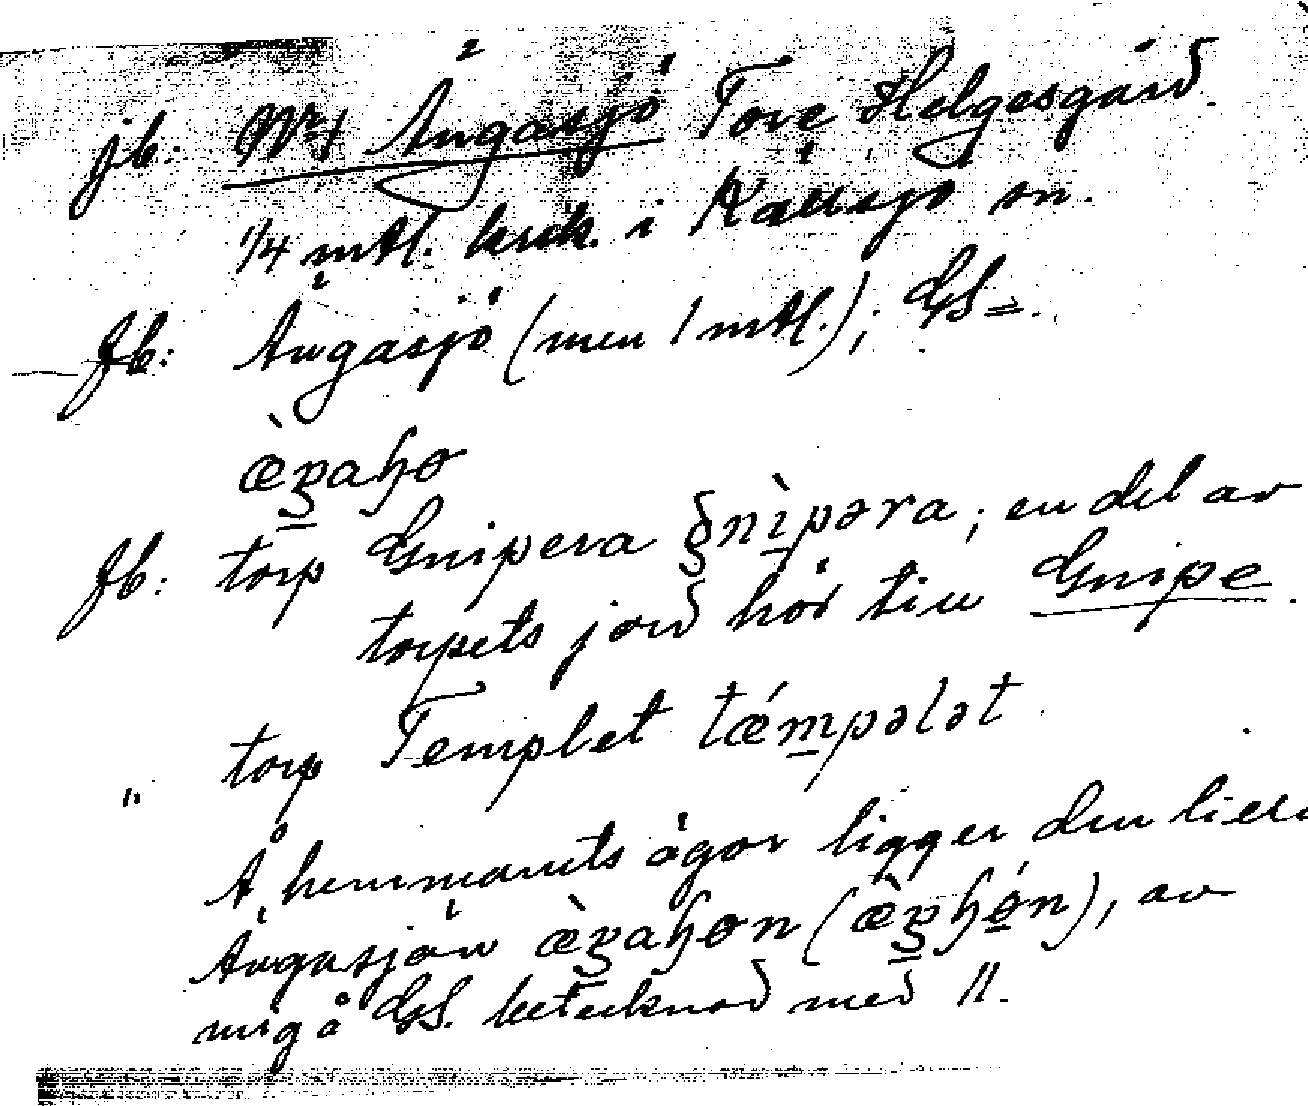 2
jb: Nr 1 Ängasjö Tore Helgesgård.
1/4 mtl. krsk. i Källsjö sn.
fb: Ängasjö (men 1 mtl.); GS =.
æ̀ŋahɵ
fb: torp Gnipera gnìpəra; en del av
torpets jord hör till Gnipe.
" torp Templet tǽmpələt
Å hemmanets ägor ligger den lilla
Ängasjön æ̀ŋahɵn (æ̀ŋhɵ́n), av
mig å GS. betecknad med 11.